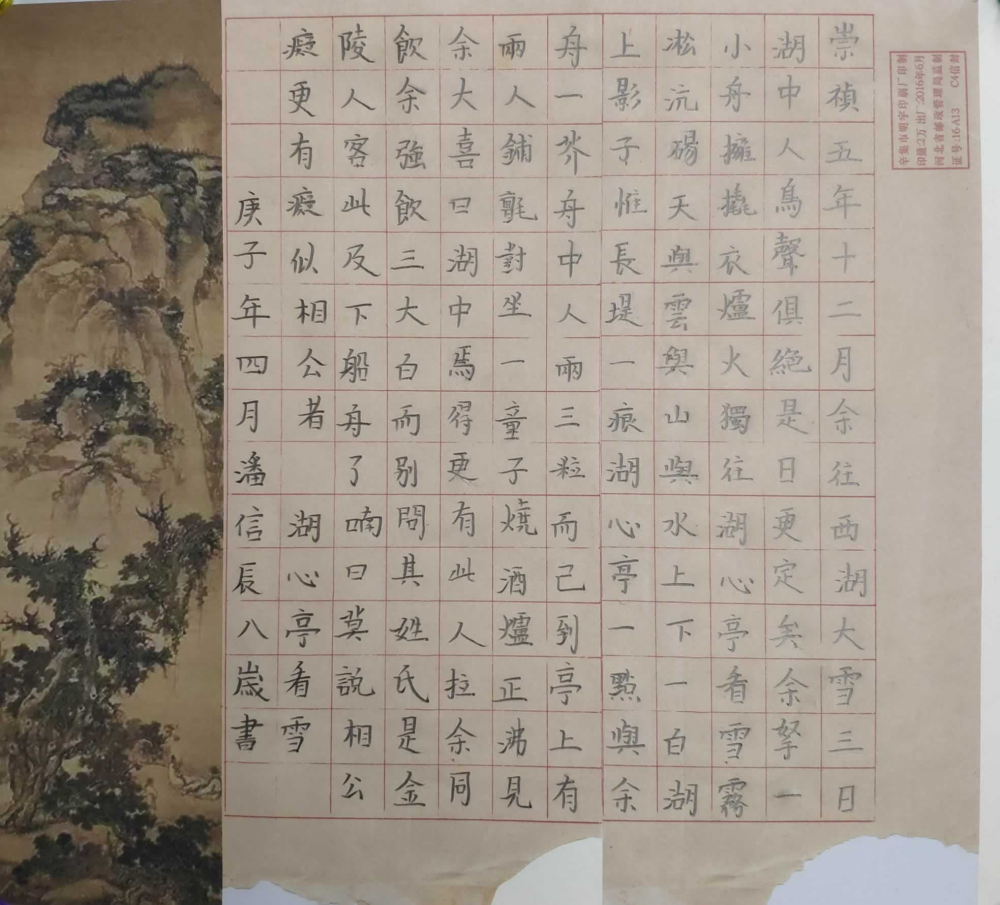 崇禎五年十二月余往西湖大雪三日
湖中人鳥聲俱絕是日更定矣余拏一
小舟擁撬衣爐火獨往湖心亭看雪霧
凇沆碭天與雲與山與水上下一白湖
上影子惟長堤一痕湖心亭一點與余
舟一芥舟中人兩三粒而己到亭上有
兩人鋪氈對坐一童子燒酒爐正沸見
余大喜曰湖中焉得更有此人拉余同
飲余強飲三大白而別問其姓氏是金
陵人客此及下船舟了喃曰莫說相公
癡更有癡似相公者 湖心亭看雪
庚子年四月潘信辰八歲書
河北省邮政管理局监制